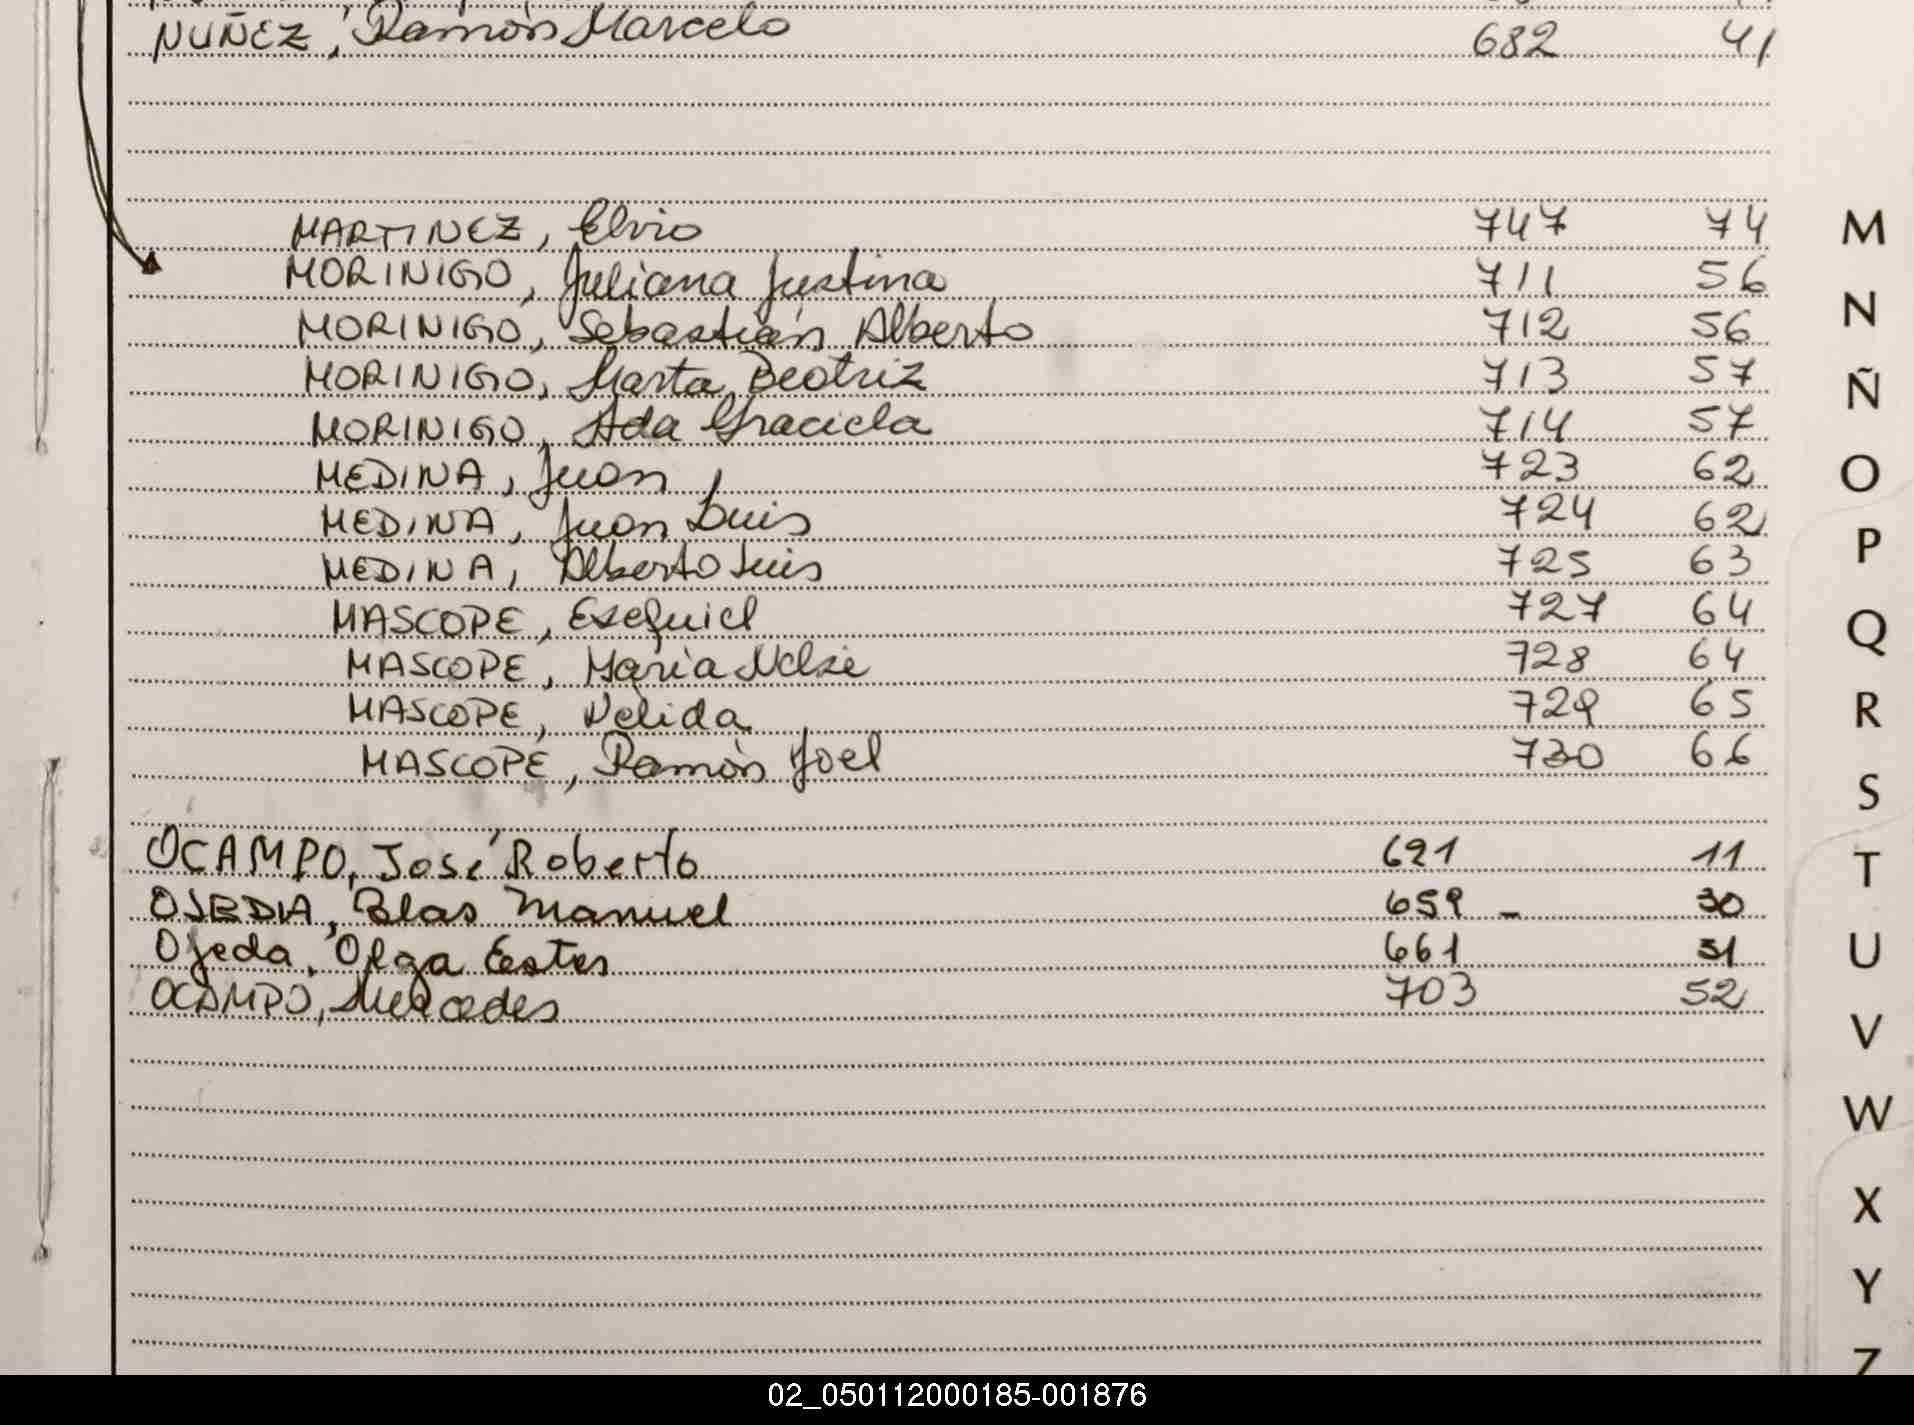 NUÑEZ, Ramón Marcelo 682 41
MARTINEZ, Elvio 747 74
MORINIGO, Juliana Justina 711 56
MORINIGO, Sebastián Alberto 712 56
MORINIGO, Marta Beatriz 713 57
MORINIGO, Ada Graciela 714 57
MEDINA, Juan 723 62
MEDINA, Juan Luis 724 62
MEDINA, Alberto Luis 725 63
MASCOPE, Ezequiel 727 64
MASCOPE, María 728 64
MASCOPE, Nelida 729 65
MASCOPE, Ramón Joel 730 66
OCAMPO, José Roberto 621 11
OJEDA, Blas Manuel 659 - 30
Ojeda, Olga Ester 661 31
OCAMPO, Mercedes 703 52
M
N
Ñ
O
P
Q
R
S
T
U
V
W
X
Y
Z
02_050112000185-001876